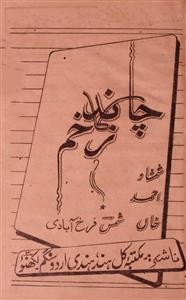 چاند
کا زخم
شمشاد
احمد
خان
شمسؔ فرخ آبادی
ناشر: مکتبہ کل ہند ہندی اردو سنگم لکھنؤ